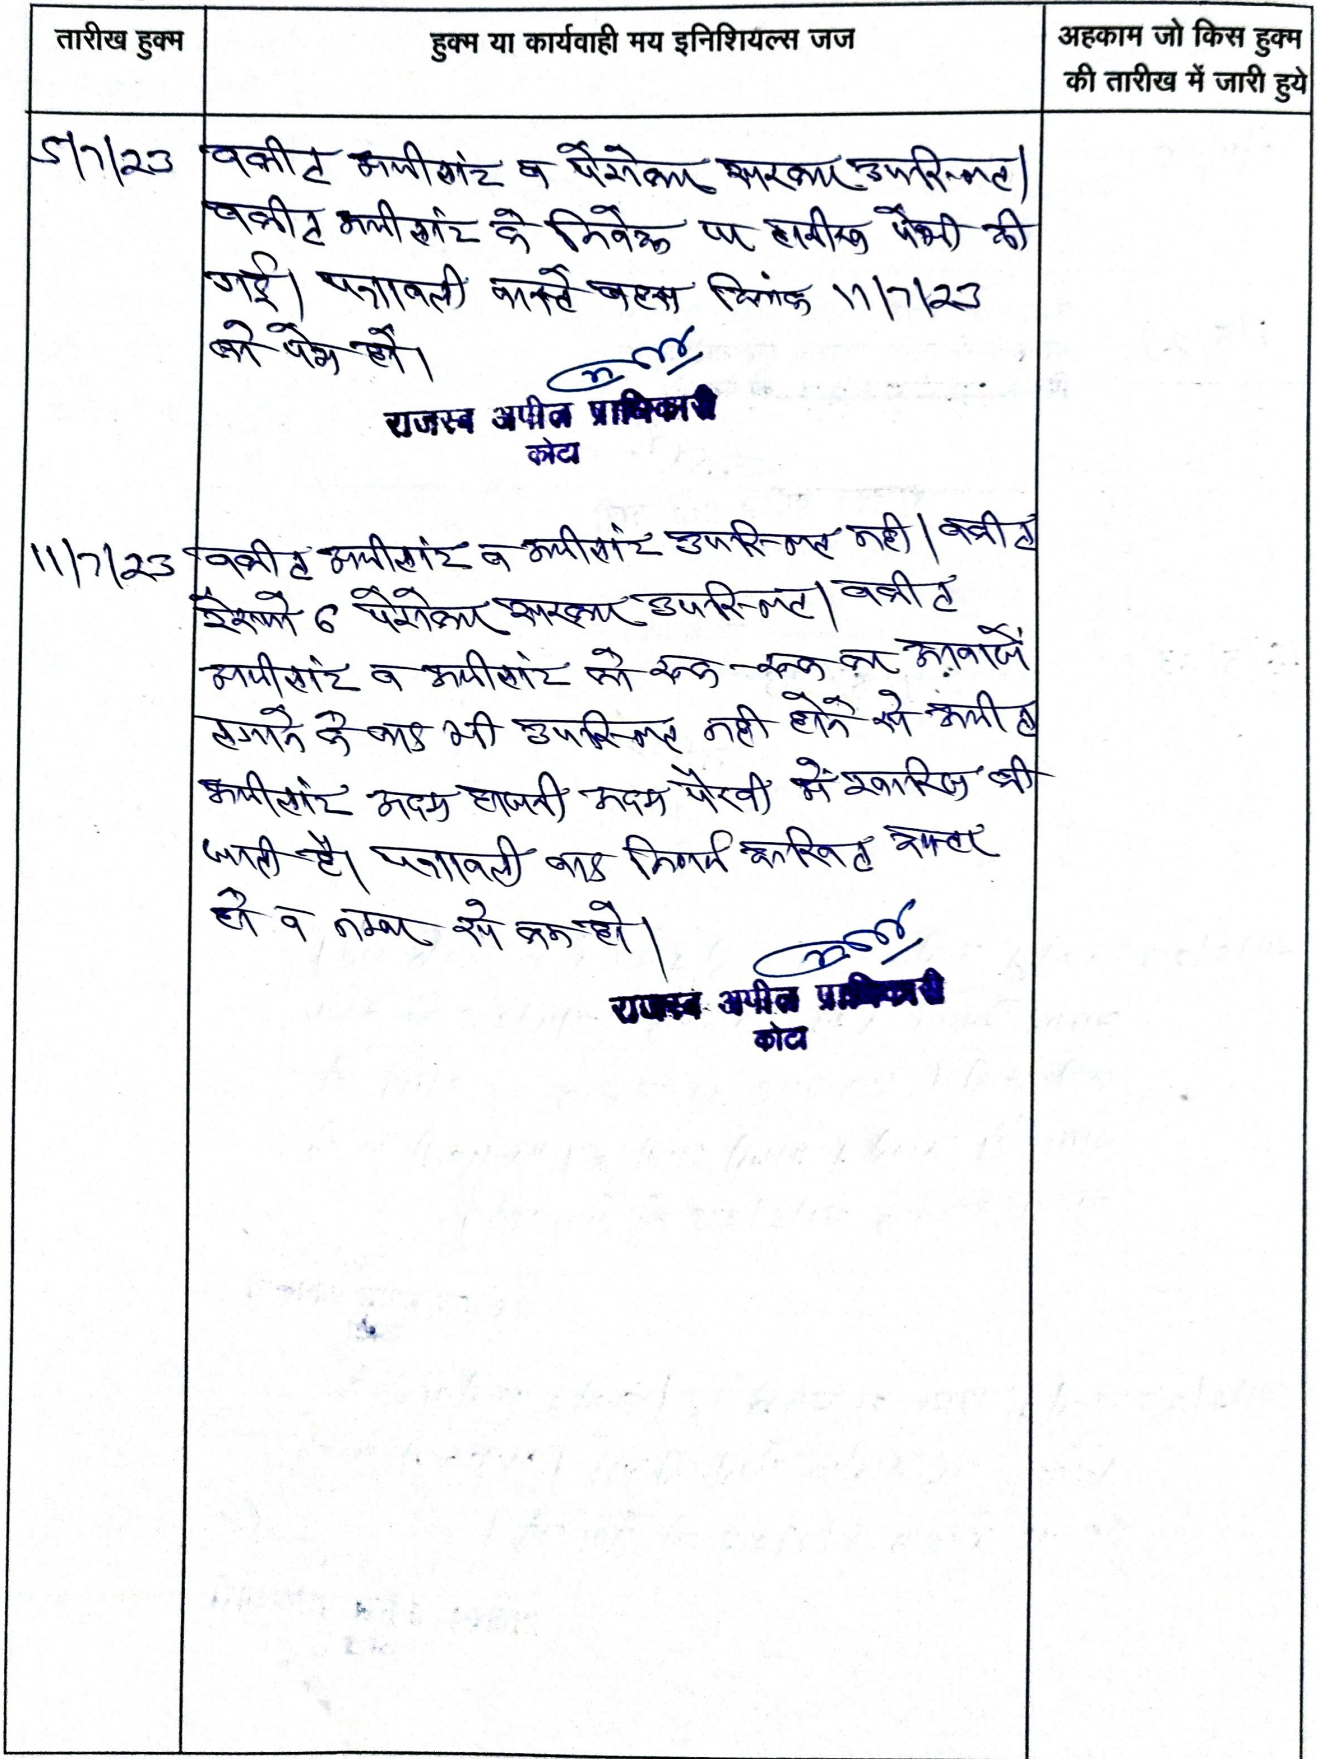 तारीख हुक्म
हुक्म या कार्यवाही मय इनिशियल्स जज
अहकाम जो किस हुक्म
की तारीख में जारी हुये
5/7/23
वकील अपीलांट व पैरोकार सरकार उपस्थित।
वकील अपीलांट के निवेदन पर तारीख पेशी दी
गई। पत्रावली वास्ते बहस दिनांक 11/7/23
को पेश हो।
राजस्व अपील प्राधिकारी
कोटा
11/7/23
वकील अपीलांट व अपीलांट उपस्थित नही। वकील
रेस्पो 6 पैरोकार सरकार उपस्थित। वकील
अपीलांट व अपीलांट को रुक-रुक कर आवाजें
लगाने के बाद भी उपस्थित नही होने से अपील
अपीलांट अदम हाजरी अदम पैरवी में खारिज की
जाती है। पत्रावली बाद निर्णय दाखिल दफ्तर
हो व नम्बर से कम हो।
राजस्व अपील प्राधिकारी
कोटा